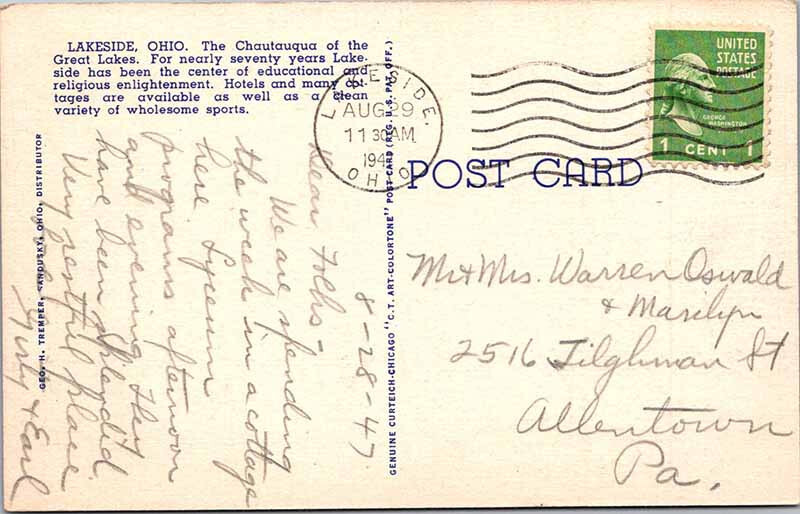 LAKESIDE, OHIO. The Chautauqua of the
Great Lakes. For nearly seventy years Lake-
side has been the center of educational and
religious enlightenment. Hotels and many cot-
tages are available as well as a clean
variety of wholesome sports.
GEO. H. TREMPER, SANDUSKY, OHIO, DISTRIBUTOR
8-28-47
Dear Folks-
We are spending
the week in a cottage
here. Lyceum
programs afternoon
and evening. They
have been splendid.
Very restful place
& Earl
GENUINE CURTEICH-CHICAGO "C. T. ART-COLORTONE" POST CARD (REG. U. S. PAT. OFF.)
LAKESIDE.
AUG 29
11 30 AM
194
OHIO
UNITED
STATES
POSTAGE
GEORGE
WASHINGTON
1 CENT 1
POST CARD
Mr & Mrs. Warren Oswald
& Marilyn
2516 Tilghman St
Allentown
Pa.